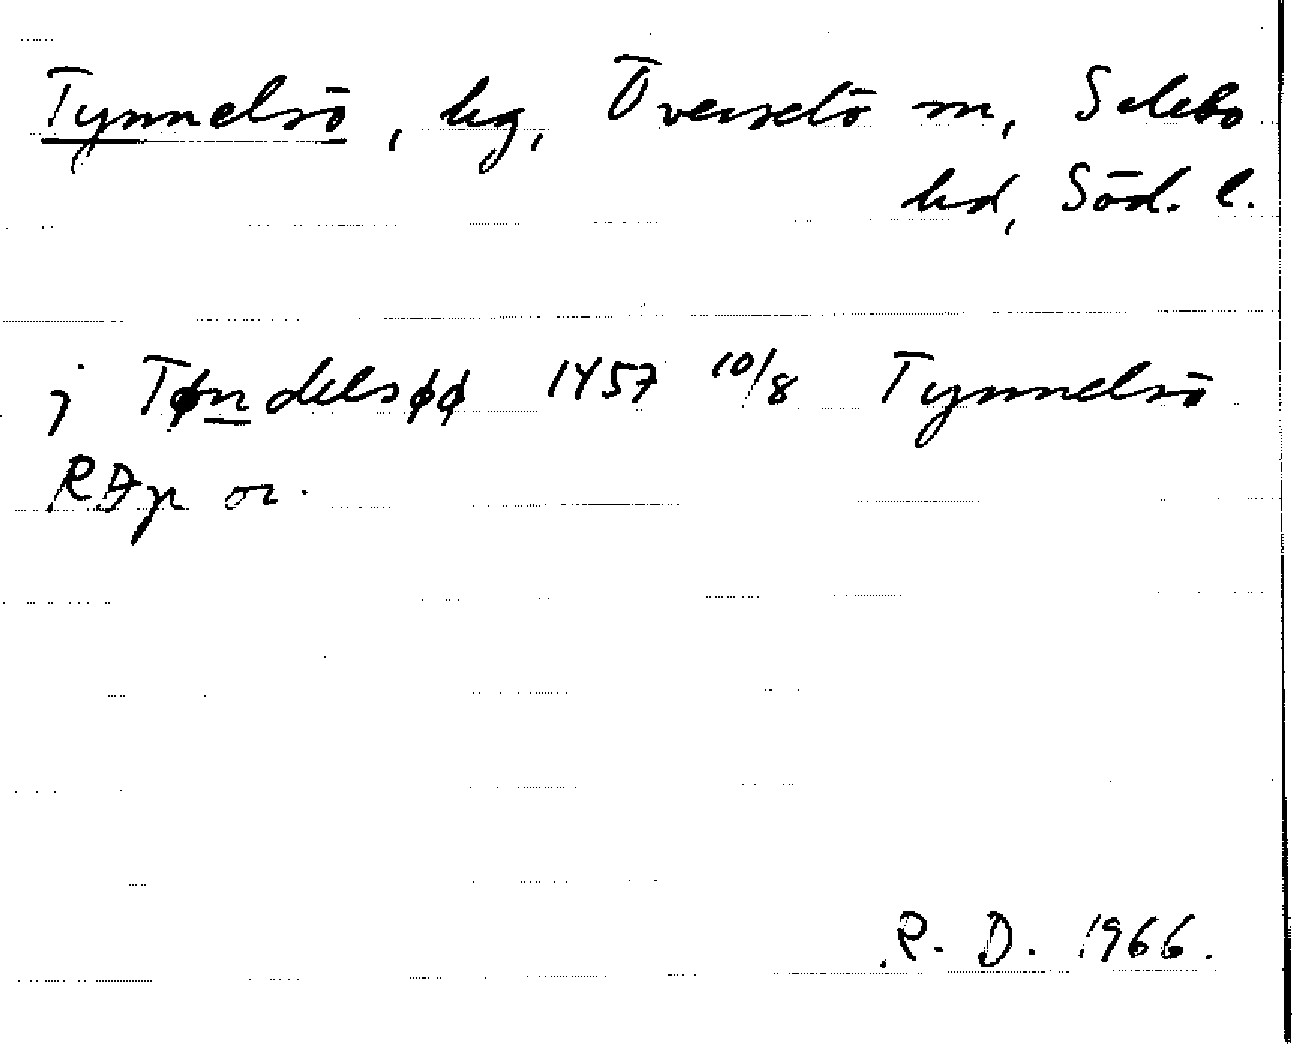 Tynnelsö, hg, Överselö sn, Selebo
hd, Söd. l.
j Tøndelsøø 1457 10/8 Tynnelsö
RDp or.
R. D. 1966.